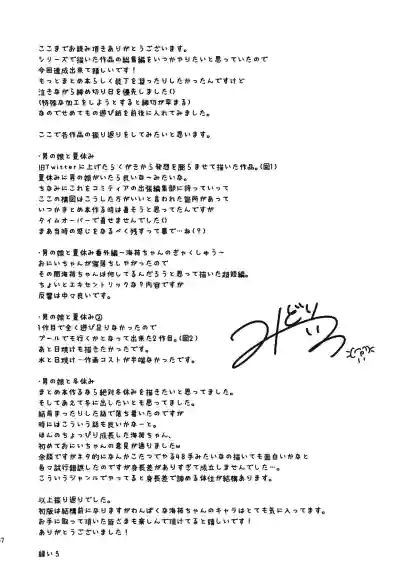 ここまでお読み頂きありがとうございます。
シリーズで描いた作品の総集編をいつかやりたいと思っていたので
今回達成出来て嬉しいです！
もっとまとめ本らしく装丁を凝ったりしたかったんですけど
泣きながら締め切り日を優先しました()
(特殊な加工をしようとすると締切が早まる)
なのでせめてもの遊び紙を前後に入れてみました。
ここで各作品の振り返りをしてみたいと思います。
・男の娘と夏休み
旧Twitterに上げたらくがきから発想を膨らませて描いた作品。(図1)
夏休みに男の娘がいたら良いな～みたいな。
ちなみにこれをコミティアの出張編集部に持っていって
ここの構図はこうした方がいいと言われた箇所があって
いつかまとめ本作る時は直そうと思ってたんですが
タイムオーバーで直せませんでした()
まあ当時の感じをなるべく残すって事で…ね(？)
・男の娘と夏休み番外編～海荷ちゃんのぎゃくしゅう～
おにいちゃんが寝落ちしやがったので
その間海荷ちゃんは何してるんだろうと思って描いた超短編。
ちょいとエキセントリックな？内容ですが
反響は中々良いです。
・男の娘と夏休み②
1作目で全く遊び足りなかったので
プールでも行くかとなって出来た2作目。(図2)
あと日焼けも描きたかったです。
水と日焼け…作画コストが半端なかったです。
・男の娘と冬休み
まとめ本作るなら絶対冬休みを描きたいと思ってました。
そしてあえて冬に出したいとも思ってました。
結局まったりした話で落ち着いたのですが
時にはこういう話も良いかなーと。
ほんのちょっぴり成長した海荷ちゃん、
初めておにいちゃんの意見が通りましたw
余談ですがネタ的になんかこたつでやる48手みたいなの描いても面白いかなと
色々試行錯誤したのですが身長差がありすぎて成立しませんでした…。
こういうジャンルでやってると身長差で諦める体位が結構あります。
以上振り返りでした。
初版は結構前になりますがわんぱくな海荷ちゃんのキャラはとても気に入ってます。
お手に取って頂いた皆さまも楽しんで頂けてると嬉しいです！
ありがとうございました！
緑いろ
みどりいろ